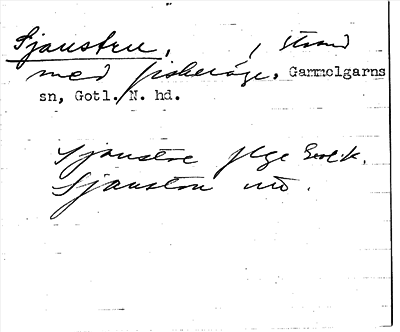 Sjaustru, , strand
med fiskeläge, Gammelgarns
sn, Gotl. N. hd.
Sjaustre flge
Sjaustru